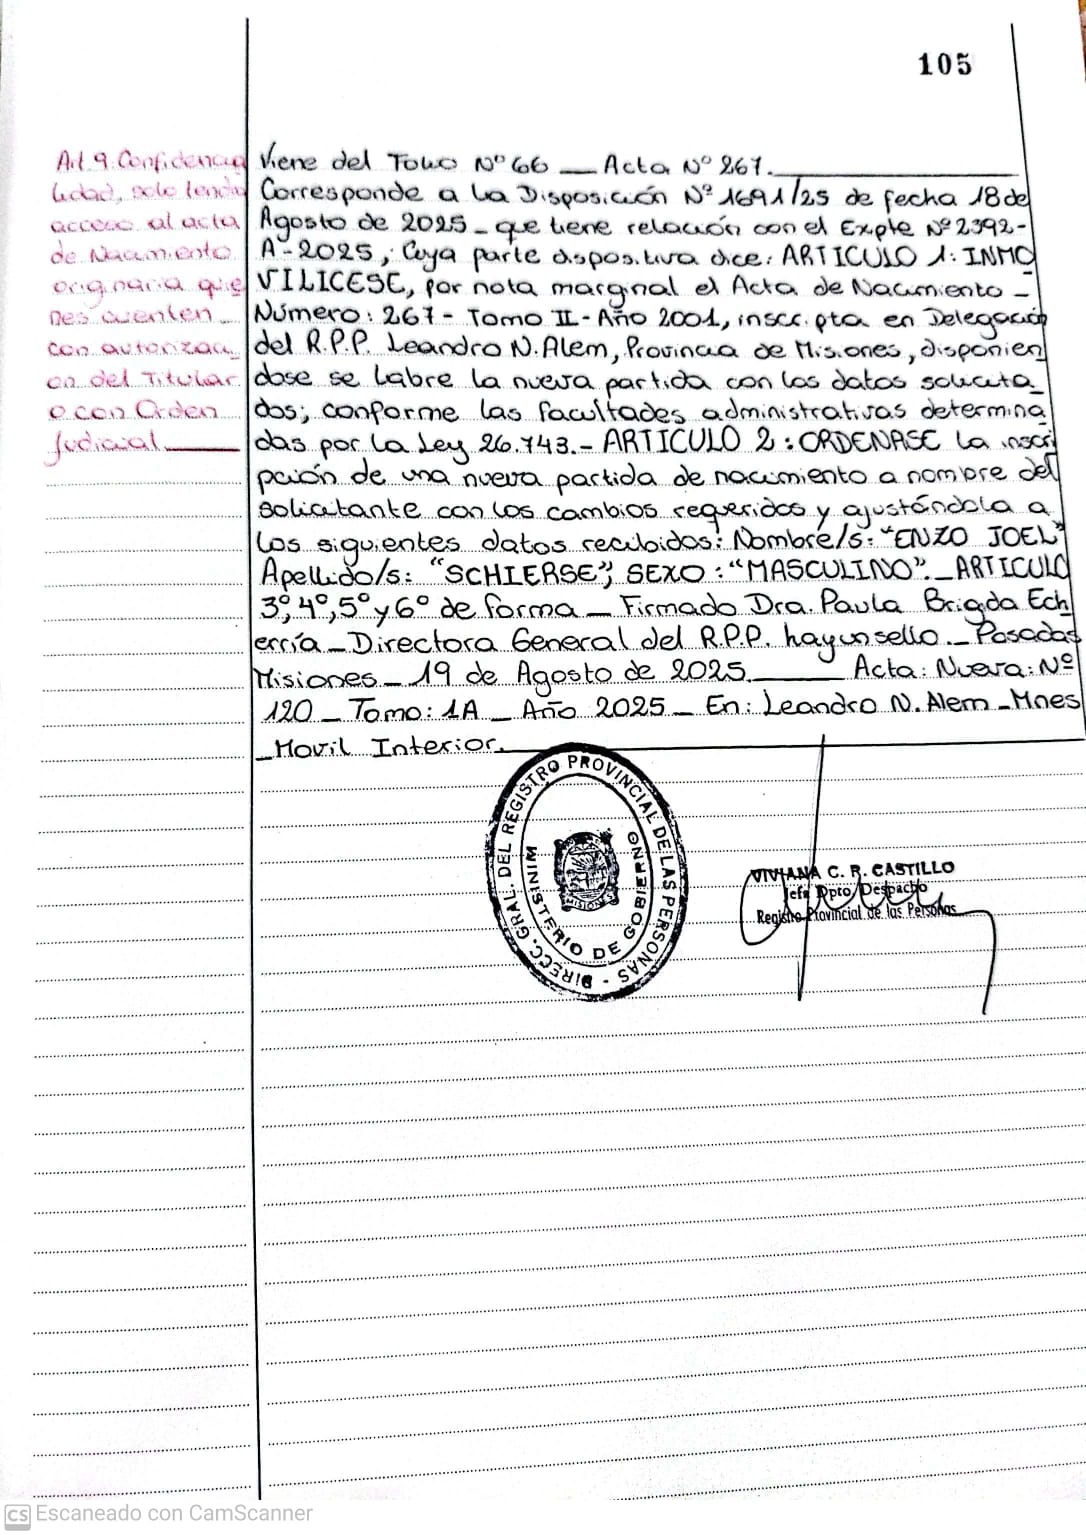 105
Art. 9. Confidencia
lidad, solo tendra
acceso al acta
de Nacimiento
originaria quie
nes cuenten
con autorizaci
on del Titular
o con Orden
Judicial
Viene del Folio Nº 66 — Acta Nº 267.
Corresponde a la Disposición Nº 1691/25 de fecha 18 de
Agosto de 2025 - que tiene relación con el Expte Nº 2392-
A-2025, Cuya parte dispositiva dice: ARTICULO 1: INMO
VILICESE, por nota marginal el Acta de Nacimiento -
Número: 267 - Tomo II - Año 2001, inscripta en Delegación
del R.P.P. Leandro N. Alem, Provincia de Misiones, disponien
dose se labre la nueva partida con los datos solicita
dos; conforme las facultades administrativas determina
das por la Ley 26.743.- ARTICULO 2: ORDENASE la inscri
pción de una nueva partida de nacimiento a nombre del
solicitante con los cambios requeridos y ajustándola a
los siguientes datos recibidos: Nombre/s: "ENZO JOEL"
Apellido/s: "SCHIERSE", SEXO: "MASCULINO". _ ARTICULO
3º, 4º, 5º y 6º de forma _ Firmado Dra. Paula Brigda Ech
erría _ Directora General del R.P.P. hay un sello. _ Posadas
Misiones _ 19 de Agosto de 2025. ____ Acta: Nueva: Nº
120 _ Tomo: 1A _ Año 2025 _ En: Leandro N. Alem _ Mnes
_ Movil Interior.
DIRECC. GRAL. DEL REGISTRO PROVINCIAL DE LAS PERSONAS -
MINISTERIO DE GOBIERNO
MISIONES
VIVIANA C. R. CASTILLO
Jefa Dpto. Despacho
Registro Provincial de las Personas
CS Escaneado con CamScanner